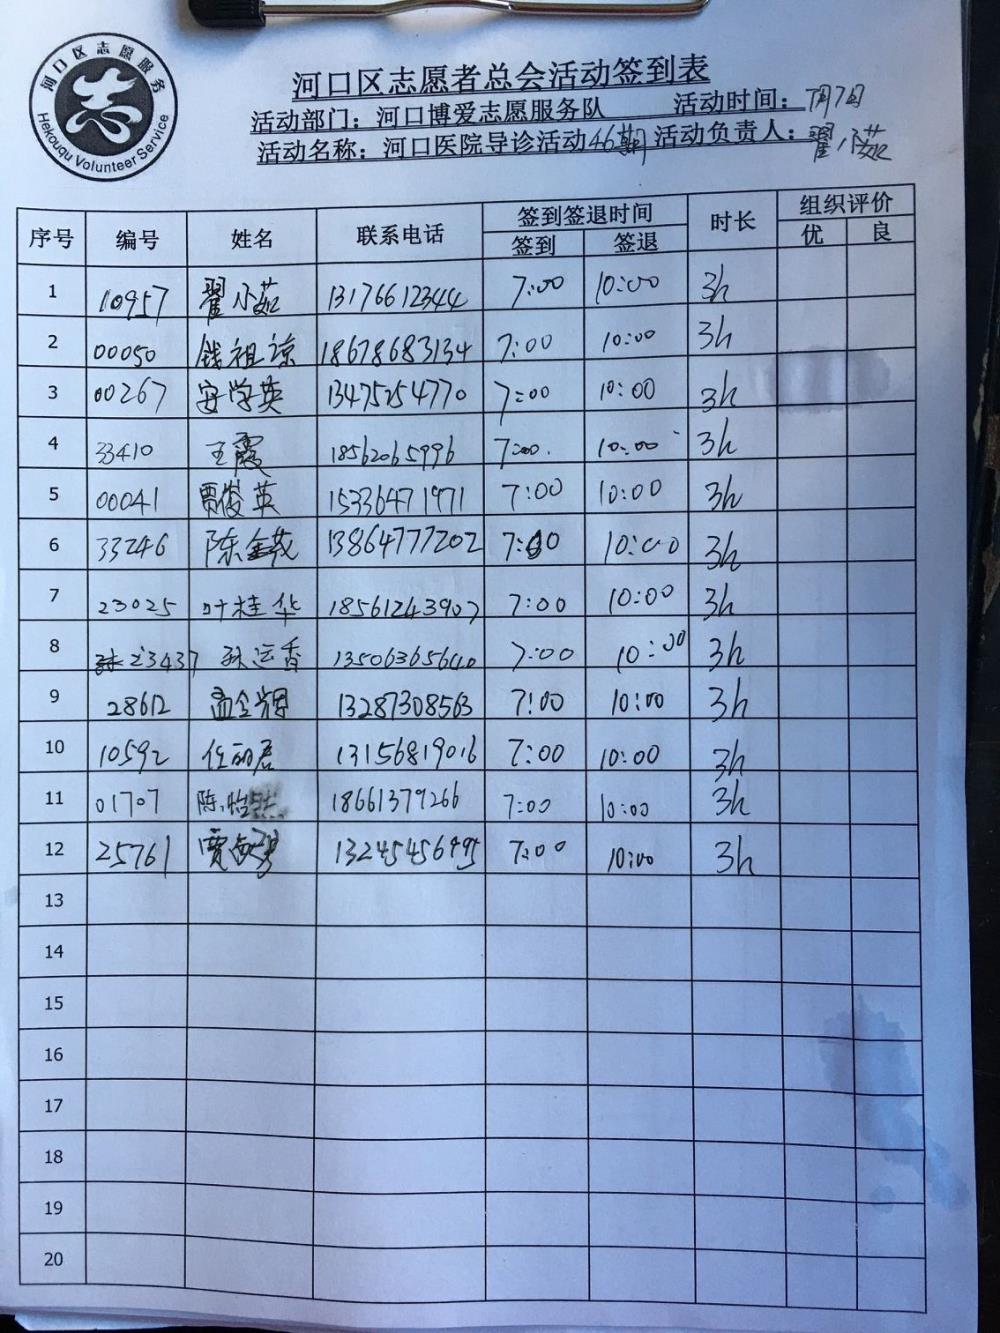 河口区志愿服务
Hekouqu Volunteer Service
志
河口区志愿者总会活动签到表
活动部门：河口博爱志愿服务队 活动时间：7月7日
活动名称：河口医院导诊活动46期 活动负责人：翟小茹
序号 编号 姓名 联系电话 签到签退时间 时长 组织评价
签到 签退 优 良
1 10957 翟小茹 13176612344 7:00 10:00 3h
2 00050 钱祖谅 18678683134 7:00 10:00 3h
3 00267 安学英 13475254770 7:00 10:00 3h
4 33410 王霞 18562065996 7:00 10:00 3h
5 00041 贾俊英 15336471971 7:00 10:00 3h
6 33246 陈金茂 13864777202 7:00 10:00 3h
7 23025 叶桂华 18561243907 7:00 10:00 3h
8 23437 孙运香 13506365640 7:00 10:00 3h
9 28612 孟全辉 13287308563 7:00 10:00 3h
10 10592 任丽君 13156819016 7:00 10:00 3h
11 01707 陈怡 18661379266 7:00 10:00 3h
12 25761 贾 13245456995 7:00 10:00 3h
13
14
15
16
17
18
19
20